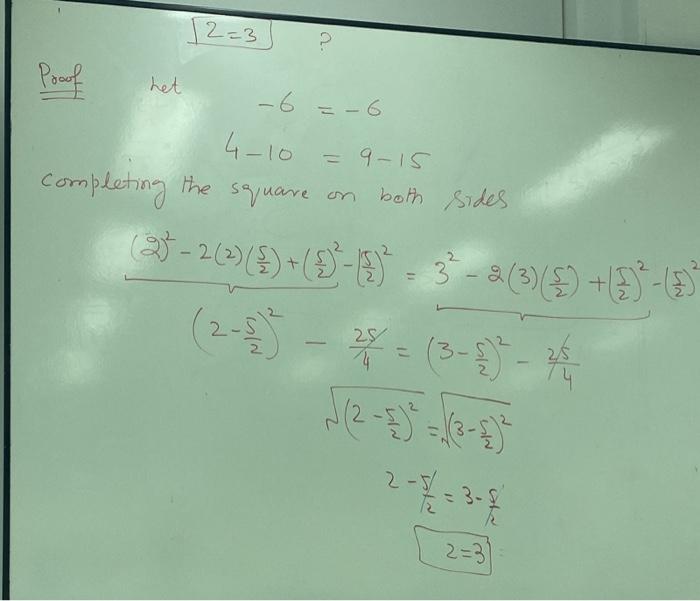 2=3 ?
Proof Let
-6 = -6
4-10 = 9-15
completing the square on both sides
(2)² - 2(2)(5/2) + (5/2)² - (5/2)² = 3² - 2(3)(5/2) + (5/2)² - (5/2)²
(2-5/2)² - 25/4 = (3-5/2)² - 25/4
√(2-5/2)² = √(3-5/2)²
2-5/2 = 3-5/2
2=3